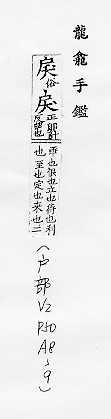 龍龕手鑑
戾俗戾正郎計反
乖也很也立也待也利
也至也定也來也二
(戶部
V2
P50
A8
~9)